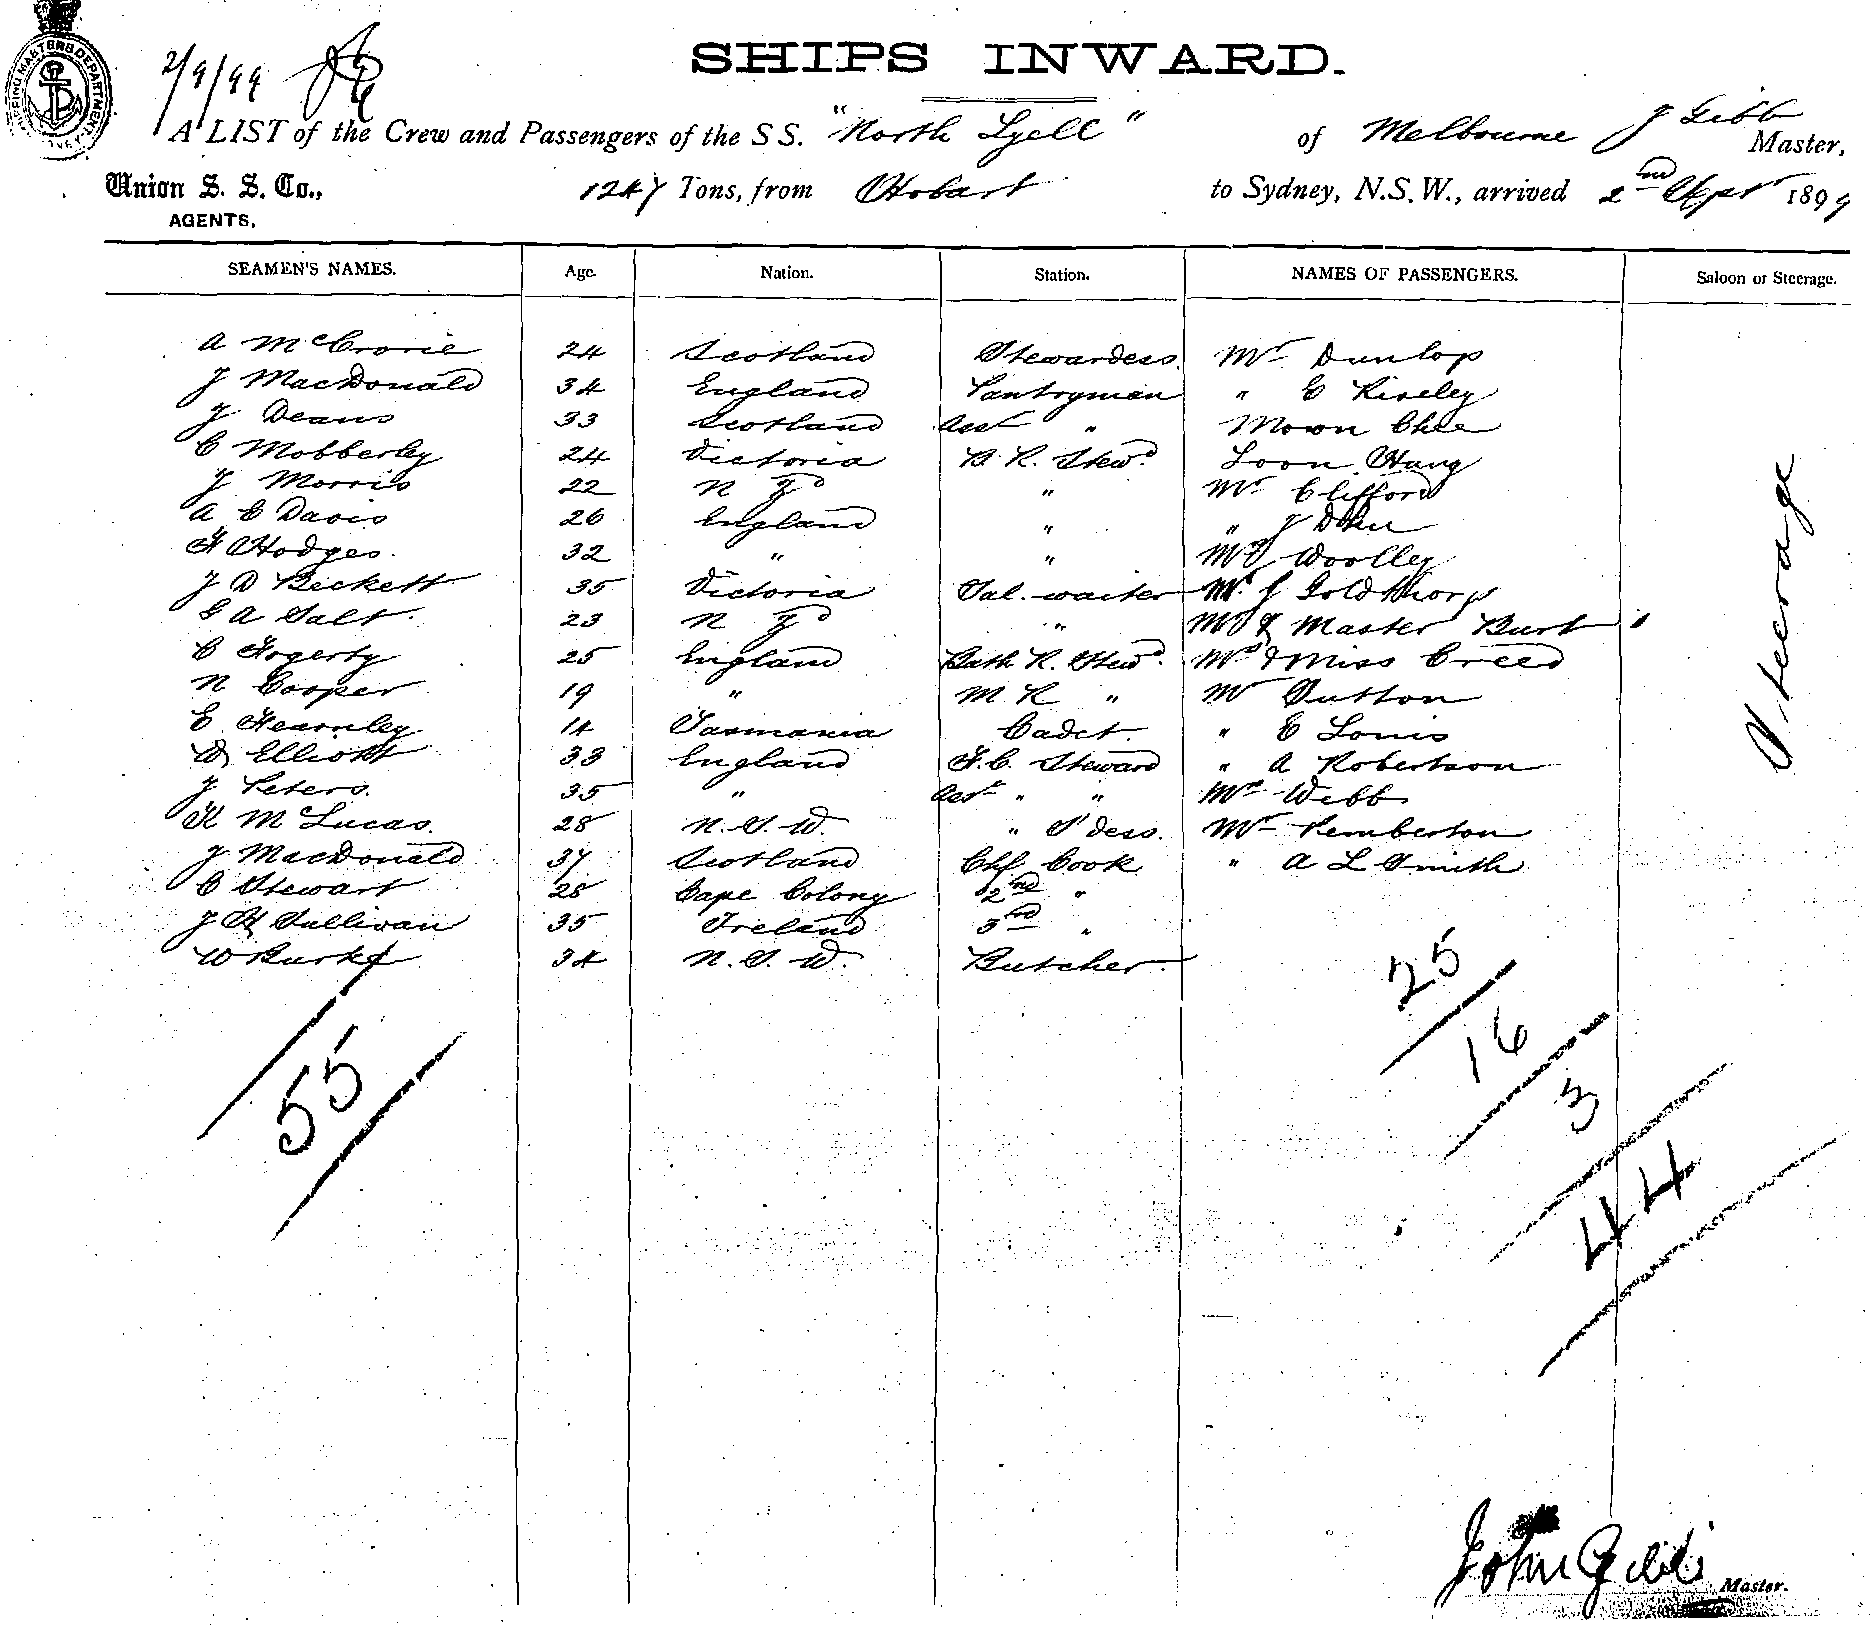 SHIPPING MASTERS DEPARTMENT
2/9/99
SHIPS INWARD.
A LIST of the Crew and Passengers of the S S. "North Lyell" of Melbourne J Gibb Master,
Union S. S. Co., AGENTS, 1247 Tons, from Hobart to Sydney, N.S.W., arrived 2nd Sept 1899
SEAMEN'S NAMES. Age. Nation. Station. NAMES OF PASSENGERS. Saloon or Steerage.
A McCrorie 24 Scotland Stewardess Mr Dunlop
J MacDonald 34 England Pantryman " E Riseley
J Deans 33 Scotland Asst " Moon Chee
C Mobberley 24 Victoria B. R. Stewd Loon Hang
J Morris 22 N Zd " Mr Clifford
A E Davis 26 England " " J
F Hodges. 32 " " Mrs Woolley
J D Beckett 35 Victoria Sal. waiter Mr J Goldthorp
G A Salt. 23 N Zd " Mrs & Master Burt "
C Fogerty 25 England Bath R. Stewd. Mrs & Miss Creed
N Cooper 19 " M R " Mr Sutton
E Fearnley 14 Tasmania Cadet. " E Louis
W Elliott 33 England F.C. Steward " A Robertson
J Peters. 35 " Asst " " Mrs Webb
K McLucas. 28 N.S.W. " S'dess. Mr Pemberton
J MacDonald 37 Scotland Chf Cook " A L Smith
C Stewart 28 Cape Colony 2nd "
J H Sullivan 35 Ireland 3rd "
W Burke 34 N.S.W. Butcher.
Steerage
55
25
16
3
44
John Gibb Master.